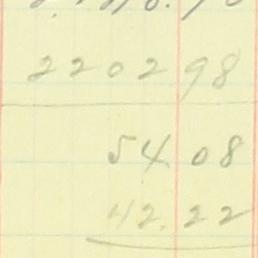 2202 98
54.08
42.22